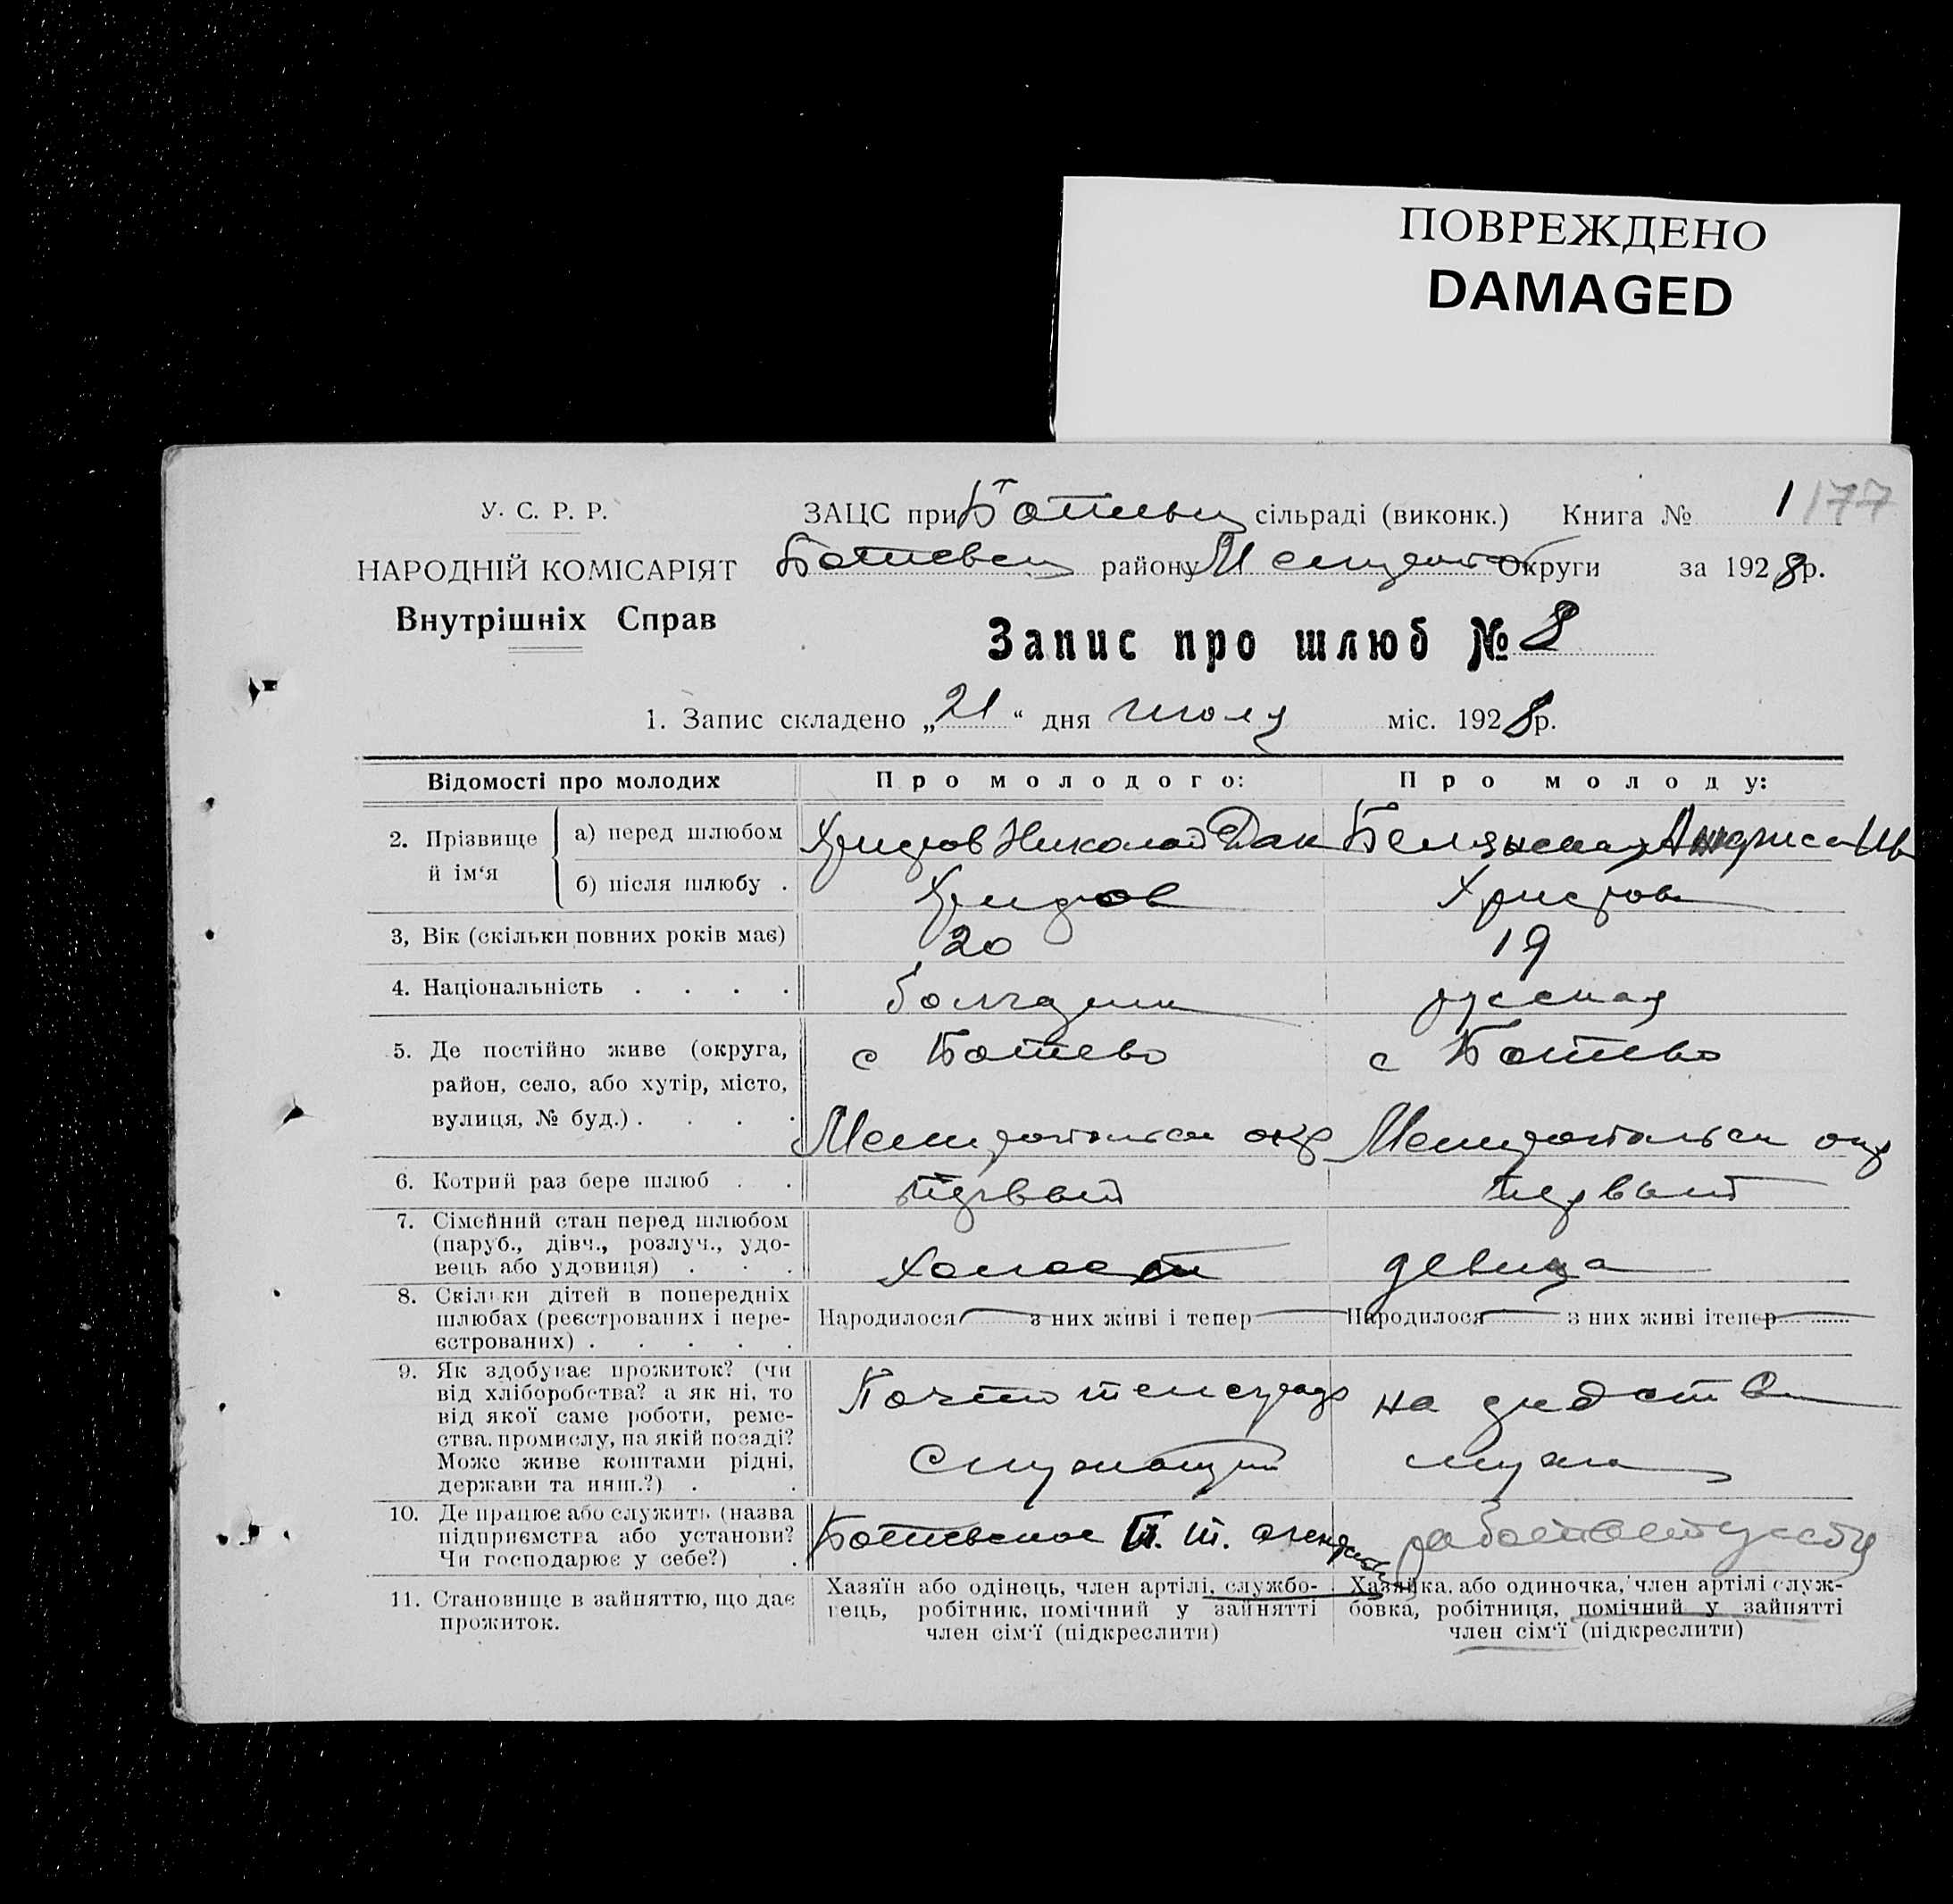 ПОВРЕЖДЕНО
DAMAGED
У. С. Р. Р.
НАРОДНІЙ КОМІСАРІЯТ
Внутрішніх Справ
ЗАЦС при Ботьевск сільраді (виконк.) Книга № 1 177
Ботиевск району Мелитоп Округи за 1928 р.
Запис про шлюб № 8
1. Запис складено „21“ дня июля міс. 1928 р.
Відомості про молодих
Про молодого:
Про молоду:
2. Прізвище й ім‘я
а) перед шлюбом
Христов Николай Дан
Белянская Ив
б) після шлюбу .
Христов
Христова
3, Вік (скільки повних років має)
20
19
4. Національність . . . .
болгарин
русская
5. Де постійно живе (округа,
район, село, або хутір, місто,
вулиця, № буд.) . . . .
с Ботиево
Мелитопольск окр
с Ботиево
Мелитопольск окр
6. Котрий раз бере шлюб . .
первый
первый
7. Сімейний стан перед шлюбом
(паруб., дівч., розлуч., удо-
вець або удовиця) . . .
холост
девица
8. Скільки дітей в попередніх
шлюбах (реєстрованих і нере-
єстрованих) . . . . .
Народилося — з них живі і тепер —
Народилося — з них живі ітепер —
9. Як здобуває прожиток? (чи
від хліборобства? а як ні, то
від якої саме роботи, реме-
ства. промислу, на якій посаді?
Може живе коштами рідні,
держави та инш.?) . .
Почто телеграф
Служащий
на средства
мужа
10. Де працює або служить (назва
підприємства або установи?
Чи господарює у себе?) .
Ботиевское п. т. агенство
работает у себя
11. Становище в зайняттю, що дає
прожиток.
Хазяїн або одінець, член артілі, службо-
вець, робітник, помічний у зайнятті
член сім‘ї (підкреслити)
Хазяйка. або одиночка, член артілі служ-
бовка, робітниця, помічний у зайнятті
член сім‘ї (підкреслити)